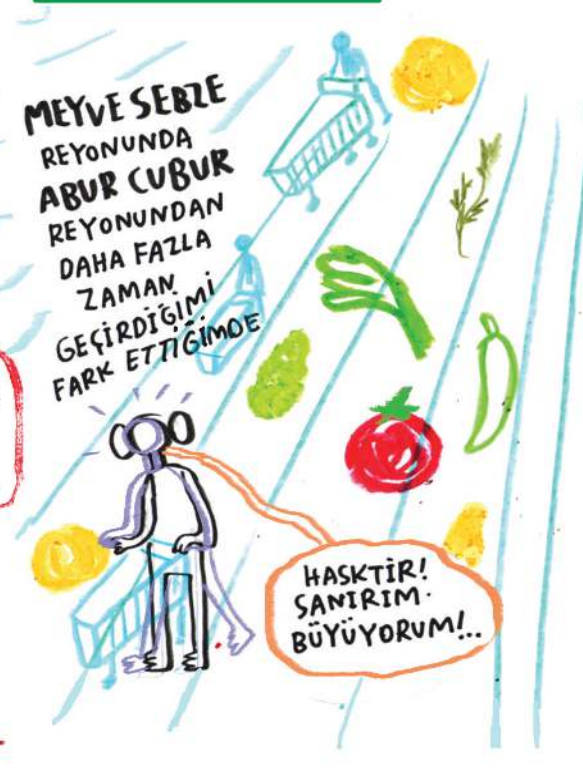 MEYVE SEBZE
REYONUNDA
ABUR CUBUR
REYONUNDAN
DAHA FAZLA
ZAMAN
GEÇİRDİĞİMİ
FARK ETTİĞİMDE
HASKTİR!
SANIRIM.
BÜYÜYORUM!..